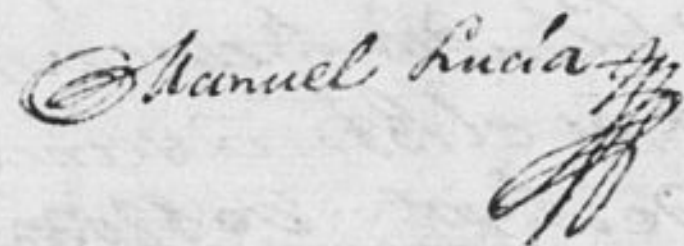 Manuel Lucía